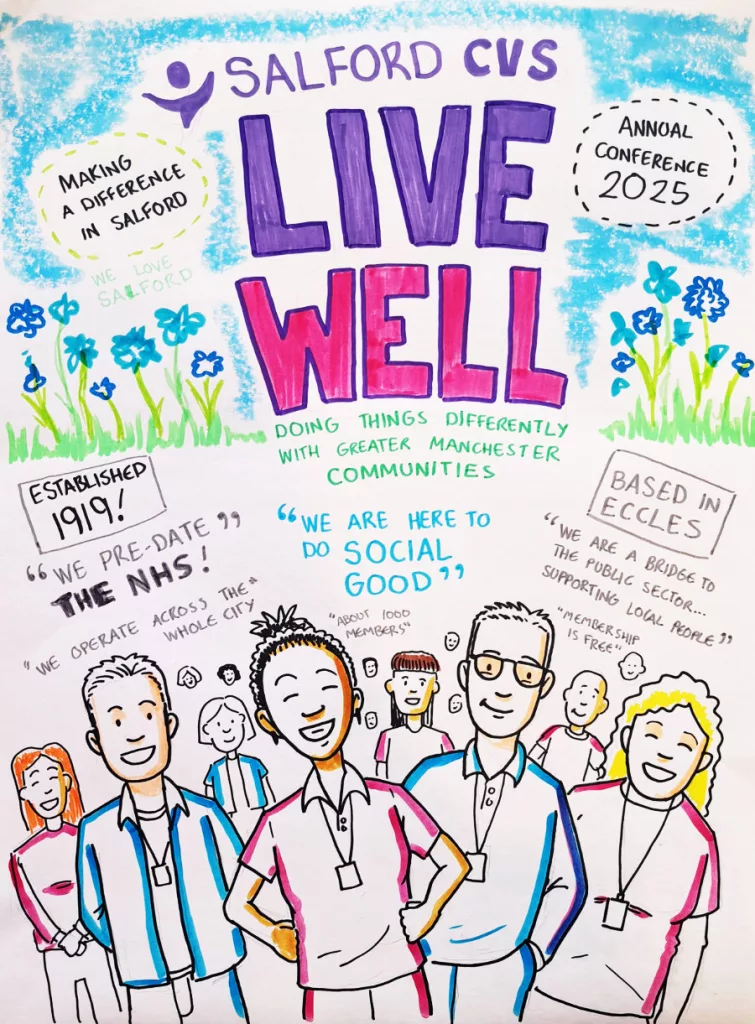 SALFORD CVS
LIVE
WELL
MAKING
A DIFFERENCE
IN SALFORD
ANNUAL
CONFERENCE
2025
WE LOVE
SALFORD
DOING THINGS DIFFERENTLY
WITH GREATER MANCHESTER
COMMUNITIES
ESTABLISHED
1919!
"WE PRE-DATE"
THE NHS!
"WE OPERATE ACROSS THE"
WHOLE CITY
"WE ARE HERE TO
DO SOCIAL
GOOD"
"ABOUT 1000
MEMBERS"
BASED IN
ECCLES
"WE ARE A BRIDGE TO
THE PUBLIC SECTOR...
SUPPORTING LOCAL PEOPLE"
"MEMBERSHIP
IS FREE"